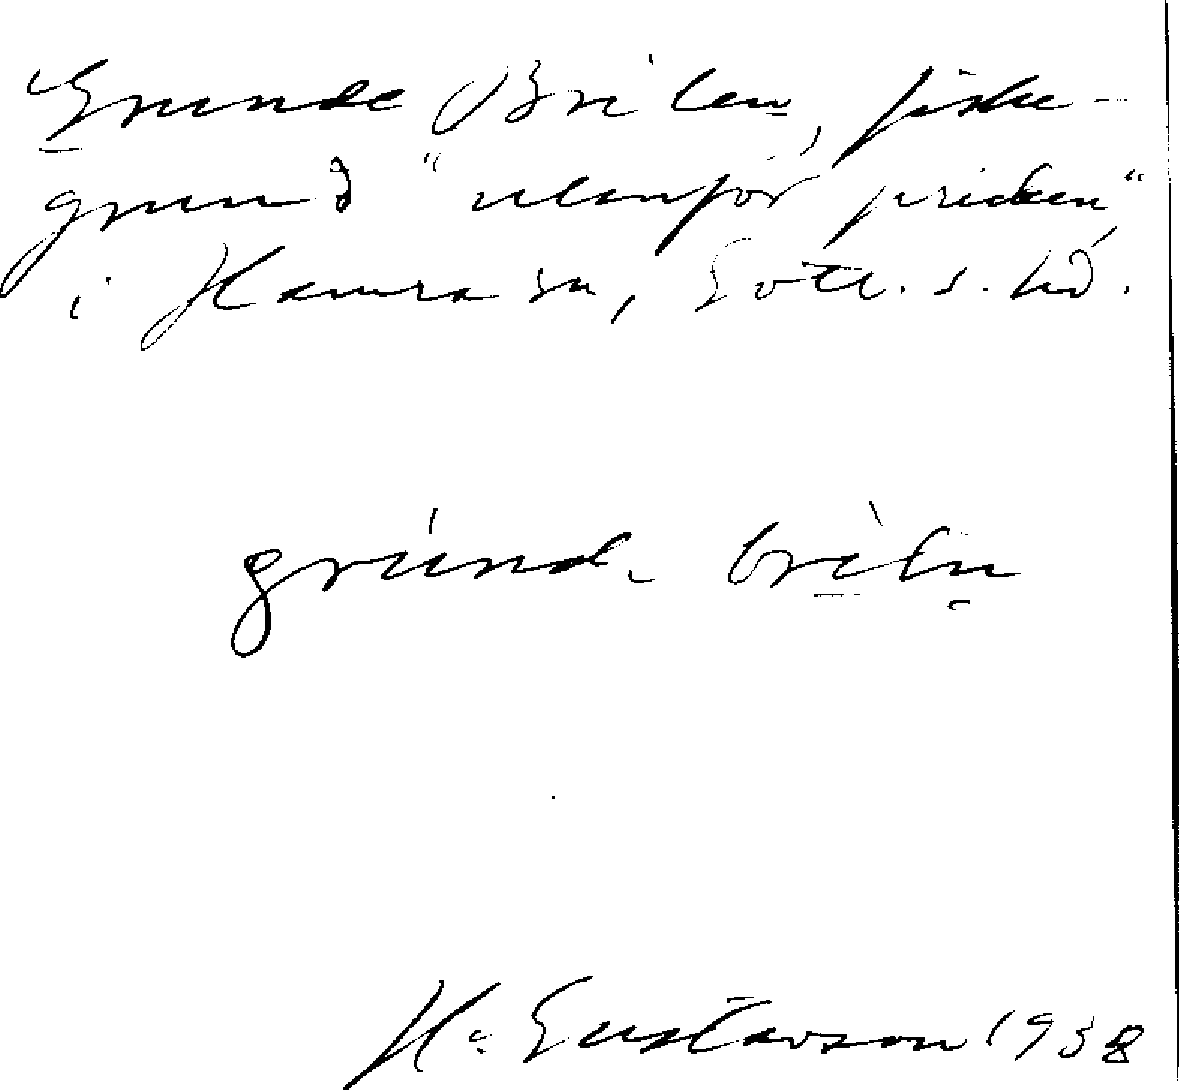 Grunde Brilen, fiske-
grund "utanför pricken"
i Hamra sn, Gotl. s. hd.
grúnd. brìln
H. Gustavson 1938